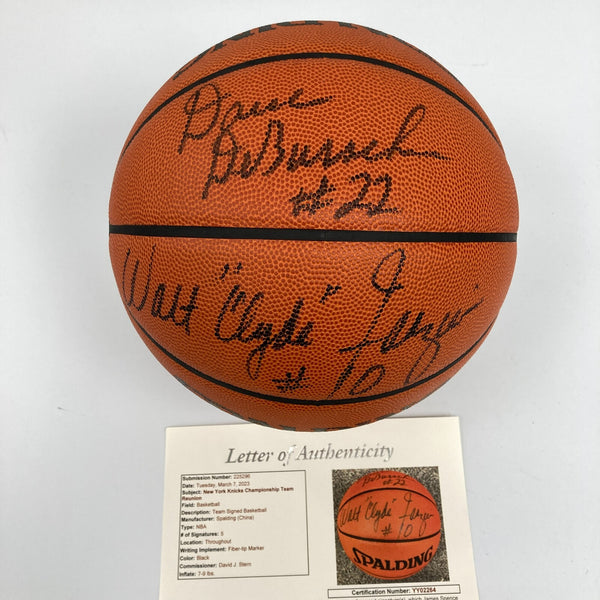 Dave
DeBusschere
#22
Walt "Clyde" Frazier
#10
Letter of Authenticity
Submission Number: 225296
Date: Tuesday, March 7, 2023
Subject: New York Knicks Championship Team
Reunion
Field: Basketball
Description: Team Signed Basketball
Manufacturer: Spalding (China)
Type: NBA
# of Signatures: 5
Location: Throughout
Writing Implement: Fiber-tip Marker
Color: Black
Commissioner: David J. Stern
Inflate: 7-9 lbs.
DeBusschere
#22
Walt "Clyde" Frazier
#10
SPALDING
Certification Number: YY02264
which James Spence